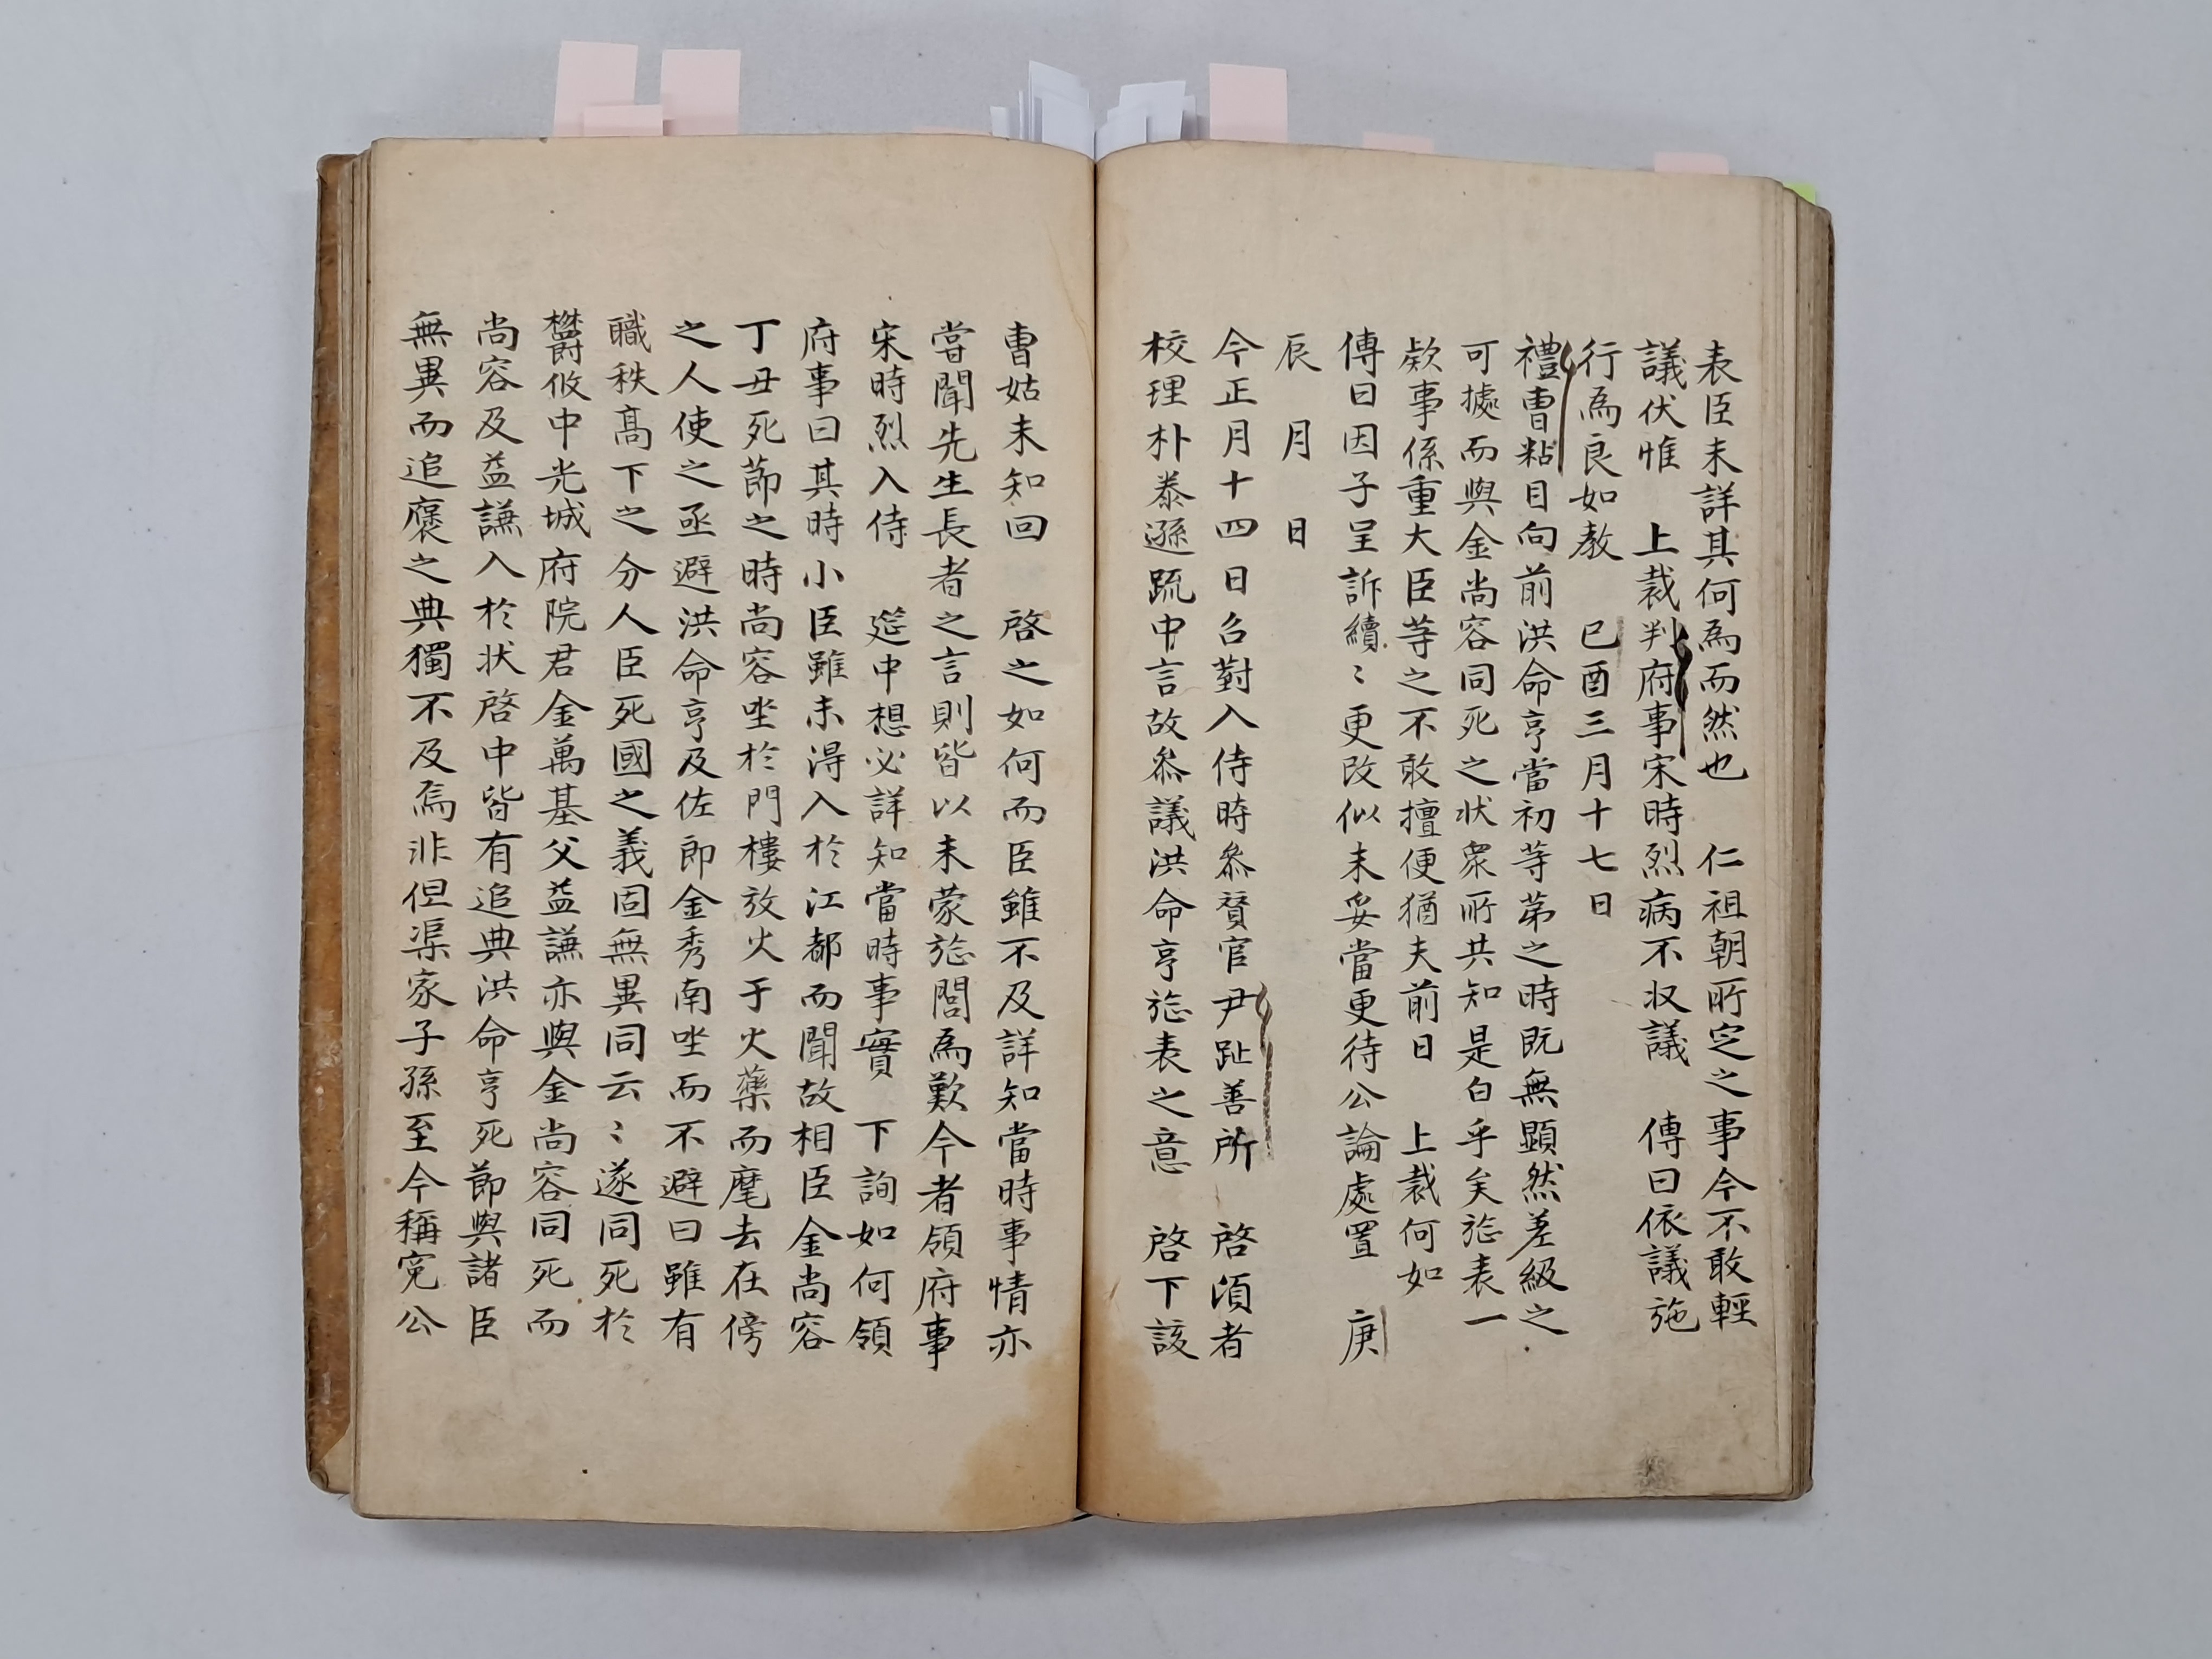 表臣未詳其何爲而然也　仁祖朝所定之事今不敢輕
議伏惟　上裁判府事宋時烈病不収議　傳曰依議施
行爲良如教　已酉三月十七日
禮曹粘目向前洪命亨當初等第之時既無顯然差級之
可據而與金尚容同死之状衆所共知是白乎矣旌表一
欵事係重大臣等之不敢擅便猶夫前日　上裁何如
傳曰因子呈訴續〻更改似未妥當更待公論處置　庚
辰　月　日
今正月十四日召對入侍時叅賛官尹趾善所　啓湏者
校理朴泰遜䟽中言故叅議洪命亨旌表之意　啓下該
曹姑未知回　啓之如何而臣雖不及詳知當時事情亦
嘗聞先生長者之言則皆以未蒙旌閭爲歎今者領府事
宋時烈入侍　筵中想必詳知當時事實　下詢如何領
府事曰其時小臣雖未淂入於江都而聞故相臣金尚容
丁丑死節之時尚容坐於門樓放火于火藥而麾去在傍
之人使之亟避洪命亨及佐郎金秀南坐而不避曰雖有
職秩高下之分人臣死國之義固無異同云〻遂同死於
欝攸中光城府院君金萬基父益謙亦與金尚容同死而
尚容及益謙入於状啓中皆有追典洪命亨死節與諸臣
無異而追褒之典獨不及焉非但渠家子孫至今稱寃公